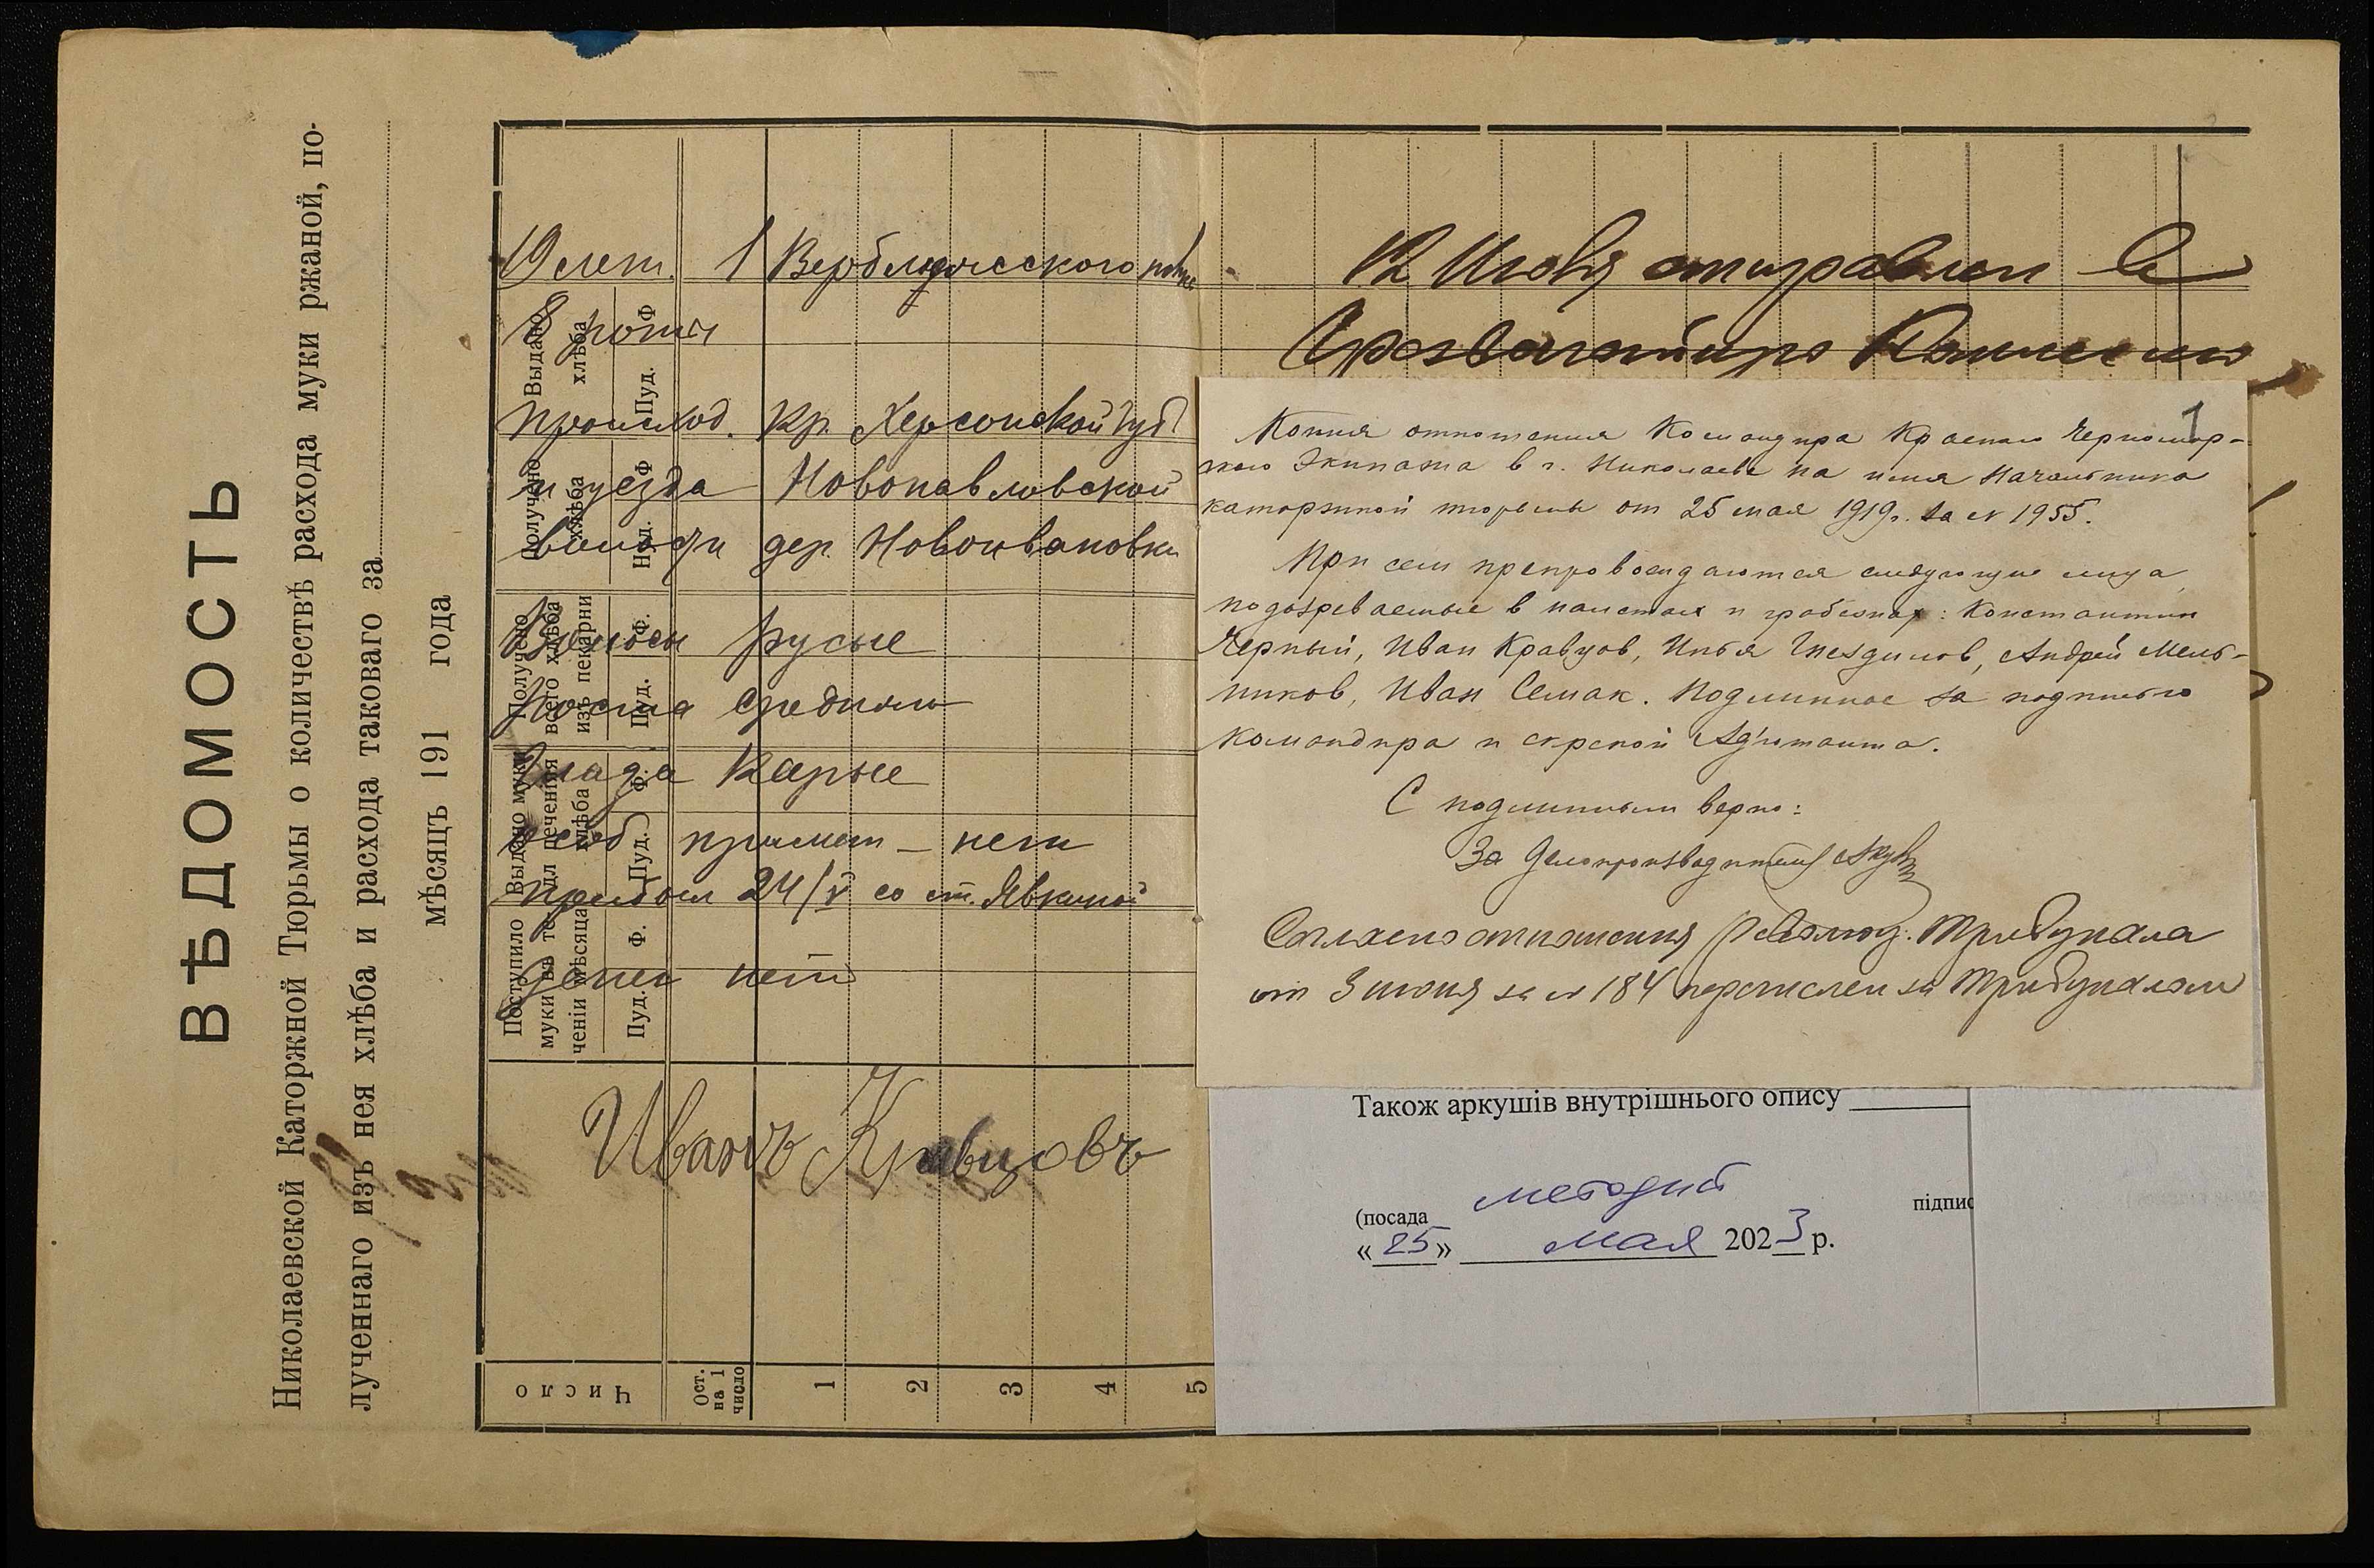 ВѢДОМОСТЬ
Николаевской Каторжной Тюрьмы о количествѣ расхода муки ржаной, по-
лученнаго изъ нея хлѣба и расхода таковаго за
мѣсяцъ 191 года
Выдано хлѣба
Пуд. Ф
Получено хлѣба
Пуд. Ф
Получено всего хлѣба изъ пекарни
Пуд. Ф.
Выдано муки для печенія хлѣба
Пуд. Ф.
Поступило муки въ теченіи мѣсяца
Пуд. Ф.
Число
Ост. на 1 число
1
2
3
4
5
19 лет. 1 Верблюжского полка
8 роты
происход. кр. Херсонской губ
и уезда Новопавловской
волости дер. Новоивановки
Волосы русые
Роста среднего
Глаза Карые
особ примет - нет
прибыл 24/V со ст. Явкиной
денег нет
Иванъ Кравцовъ
12 Июня отправлен в
Чрезвычайную Комиссию
1
Копия отношения Командира Красного Черномор-
ского Экипажа в г. Николаеве на имя Начальника
каторжной тюрьмы от 25 мая 1919 г. за № 1955.
При сем препровождаются следующие лица,
подозреваемые в налетах и грабежах: Константин
Черный, Иван Кравцов, Илья Гнездилов, Андрей Мель-
ников, Иван Семак. Подлинное за подписью
командира и скрепой Адъютанта.
С подлинным верно:
За Делопроизводителя
Согласно отношения Революц. Трибунала
от 3 июня за № 184 перечислен за Трибуналом
Також аркушів внутрішнього опису
методист
(посада підпис
« 25 » мая 2023 р.